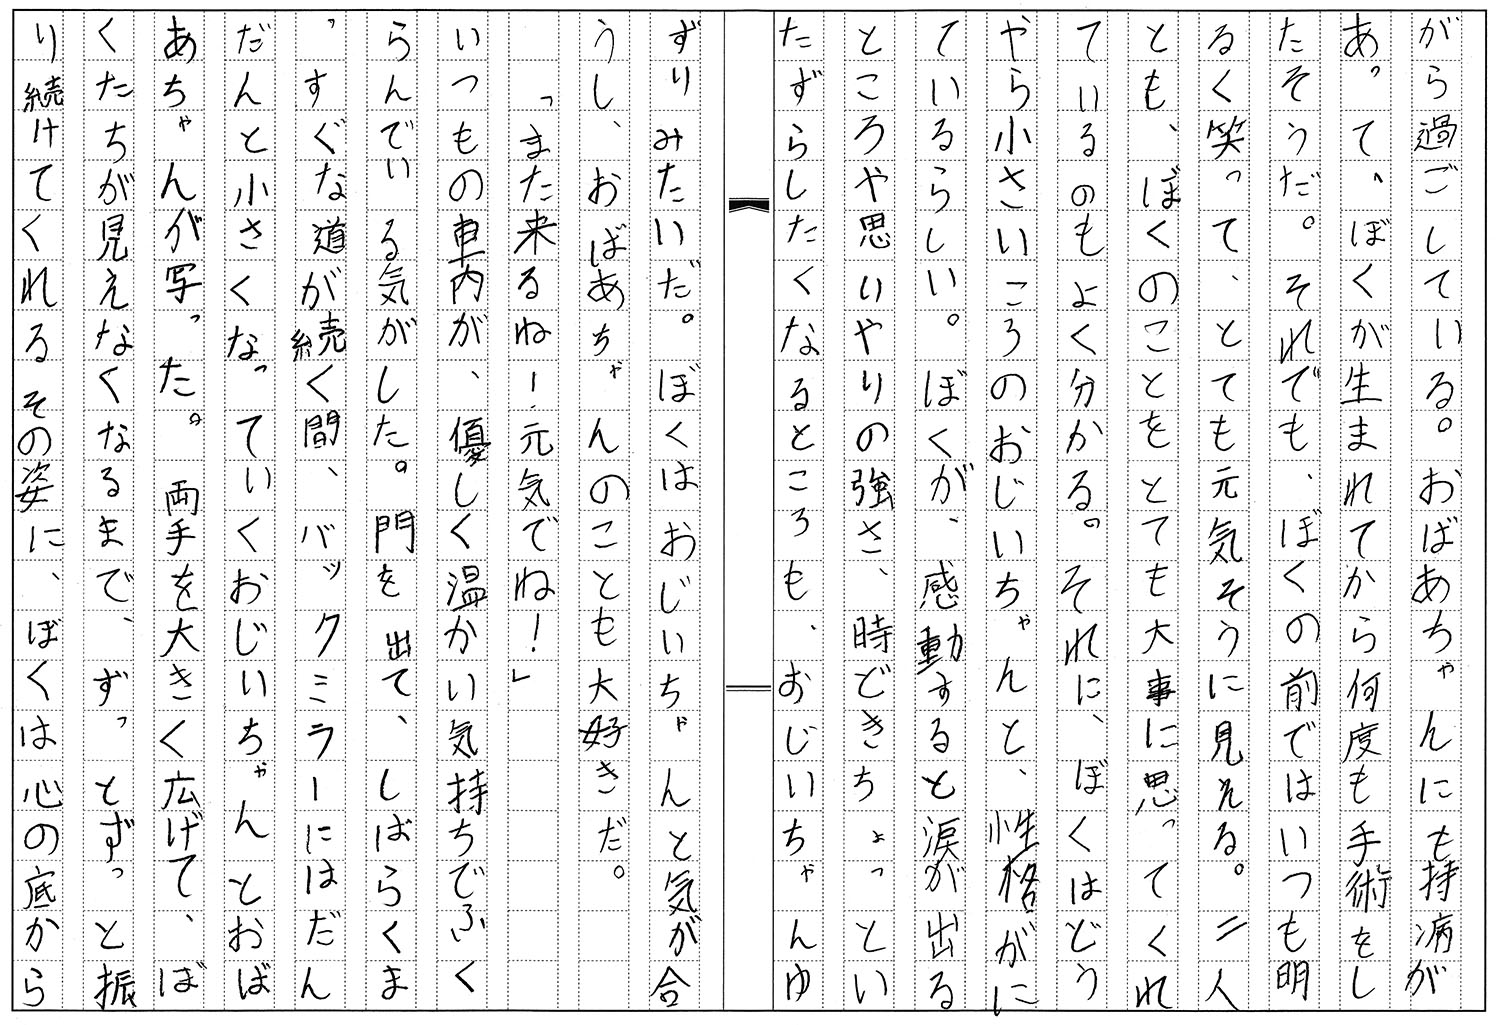 がら過ごしている。おばあちゃんにも持病が
あって、ぼくが生まれてから何度も手術をし
たそうだ。それでも、ぼくの前ではいつも明
るく笑って、とても元気そうに見える。二人
とも、ぼくのことをとても大事に思ってくれ
ているのもよく分かる。それに、ぼくはどう
やら小さいころのおじいちゃんと、性格がに
ているらしい。ぼくが、感動すると涙が出る
ところや思いやりの強さ、時どきちょっとい
たずらしたくなるところも、おじいちゃんゆ
ずりみたいだ。ぼくはおじいちゃんと気が合
うし、おばあちゃんのことも大好きだ。
「また来るねー元気でね！」
いつもの車内が、優しく温かい気持ちでふく
らんでいる気がした。門を出て、しばらくま
っすぐな道が続く間、バックミラーにはだん
だんと小さくなっていくおじいちゃんとおば
あちゃんが写った。両手を大きく広げて、ぼ
くたちが見えなくなるまで、ずっとずっと振
り続けてくれるその姿に、ぼくは心の底から